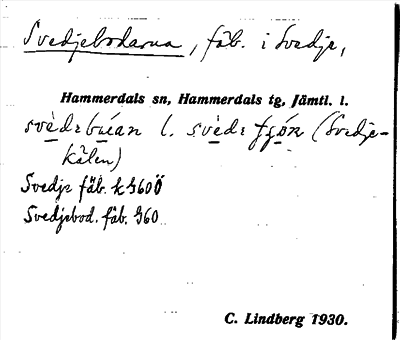 Svedjebodarna, fäb. i Svedje,
Hammerdals sn, Hammerdals tg, Jämtl. l.
svèdebúan l. svède (Svedje-
kälen)
Svedje fäb. k 960 Ö
Svedjebod. fäb. 960
C. Lindberg 1930.